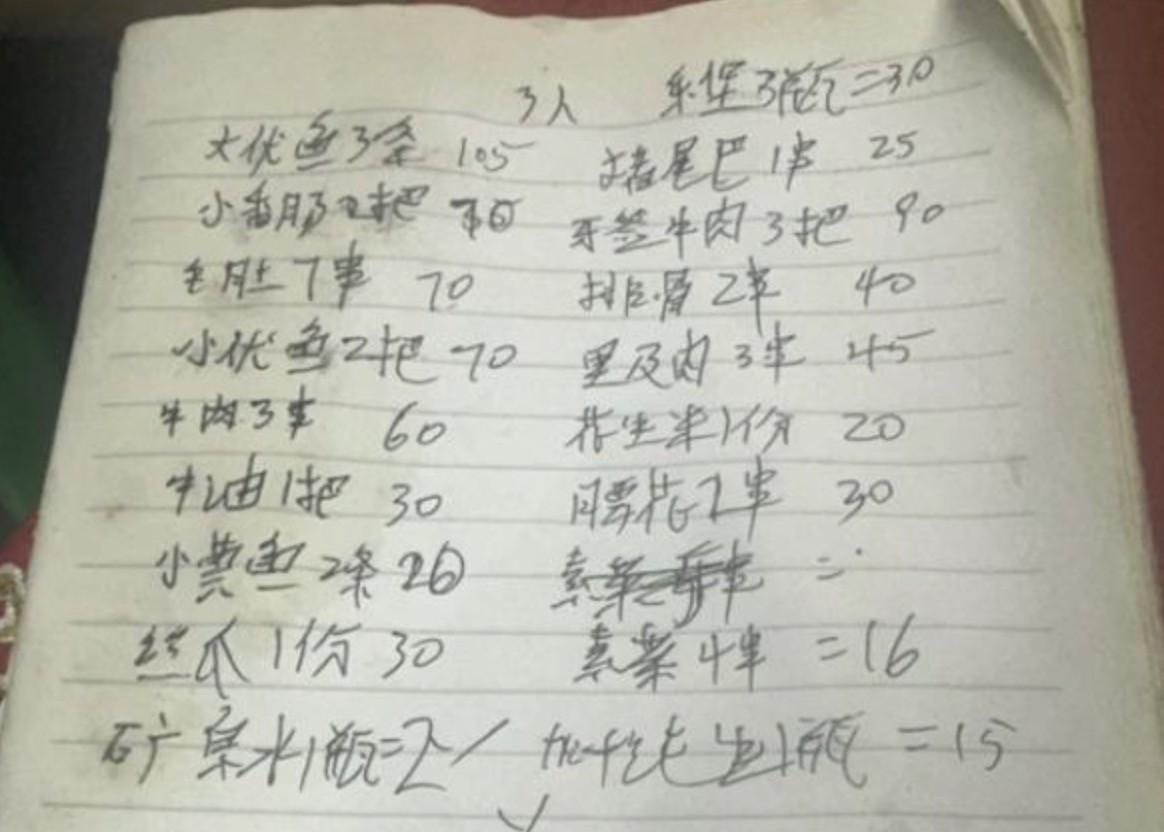 3人 乐堡3瓶=30
大优鱼3条 105 猪尾巴1串 25
小香肠2把 70 牙签牛肉3把 90
毛肚7串 70 排骨2串 40
小优鱼2把 70 里及肉3串 45
牛肉3串 60 花生米1份 20
牛油1把 30 腰花2串 30
小黄鱼2条 20 素菜 串 =
丝瓜1份 30 素菜4串 =16
矿泉水1瓶=2 / 加 1瓶 =15